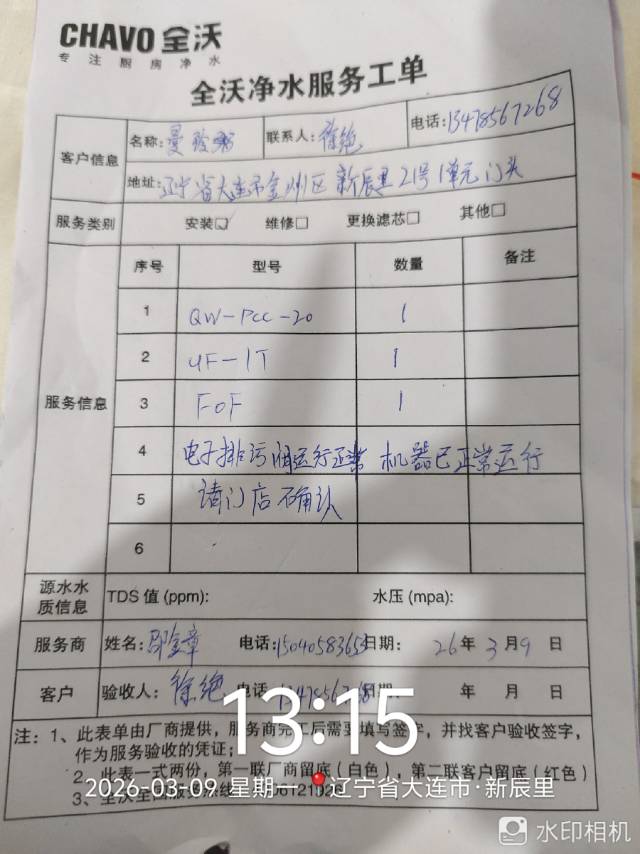 CHAVO 全沃
专注厨房净水
全沃净水服务工单
客户信息
名称: 曼玲粥 联系人: 徐艳 电话: 13478567268
地址: 辽宁省大连市金州区新辰里21号1单元门头
服务类别 安装☐ 维修☐ 更换滤芯☐ 其他☐
服务信息
序号 型号 数量 备注
1 QW-PCC-20 1
2 UF-1T 1
3 FOF 1
4 电子排污阀运行正常 机器已正常运行
5 请门店确认
6
源水水质信息 TDS 值 (ppm): 水压 (mpa):
服务商 姓名: 邵金章 电话: 15040583653 日期: 26 年 3 月 9 日
客户 验收人: 徐艳 电话 日期 年 月 日
13:15
注: 1、此表单由厂商提供，服务商完工后需要填写签字，并找客户验收签字，
作为服务验收的凭证;
2、此表一式两份，第一联厂商留底 (白色)，第二联客户留底 (红色)
3、全沃全国服务热线
2026-03-09 星期一 辽宁省大连市·新辰里
水印相机